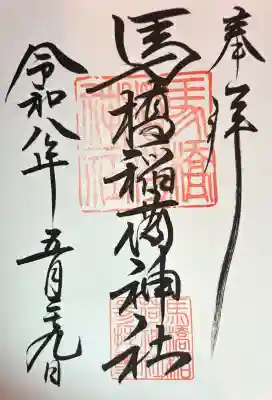 奉拝
馬橋稲荷神社
令和八年 五月二十九日
馬橋